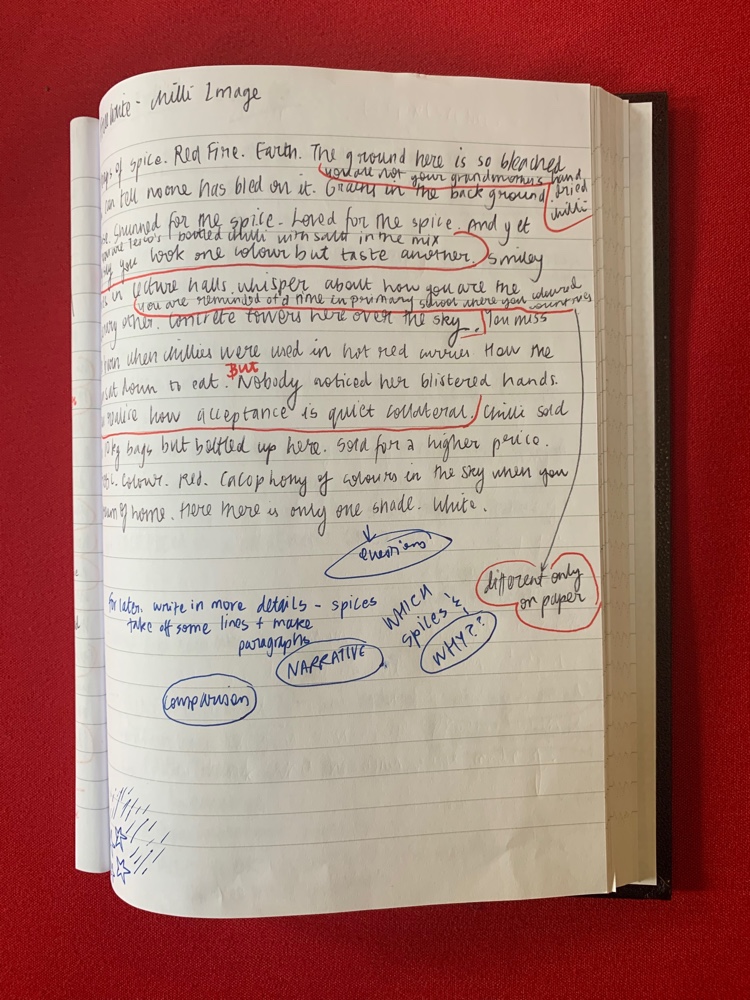 - Chilli Image
of spice. Red Fire. Earth. The ground here is so bleached
you are not your grandmother's hand
dried
chilli
can tell no one has bled on it. Grains in the background.
Shunned for the spice. Loved for the spice. And yet
bottled chilli with salt in the mix
you look one colour but taste another. Smiley
in lecture halls whisper about how you are the
you are reminded of a time in primary school where you coloured
countries
other. Concrete towers here over the sky. You miss
when chillies were used in hot red curries. How the
sat down to eat. But Nobody noticed her blistered hands.
realise how acceptance is quiet collateral. Chilli sold
kg bags but bottled up here. Sold for a higher perico.
Colour. Red. Cacophony of colours in the sky when you
of home. Here there is only one shade. White.
questions
different only
on paper
for later. write in more details - spices
take off some lines + make
paragraphs
WHICH
spices &
WHY??
NARRATIVE
comparison